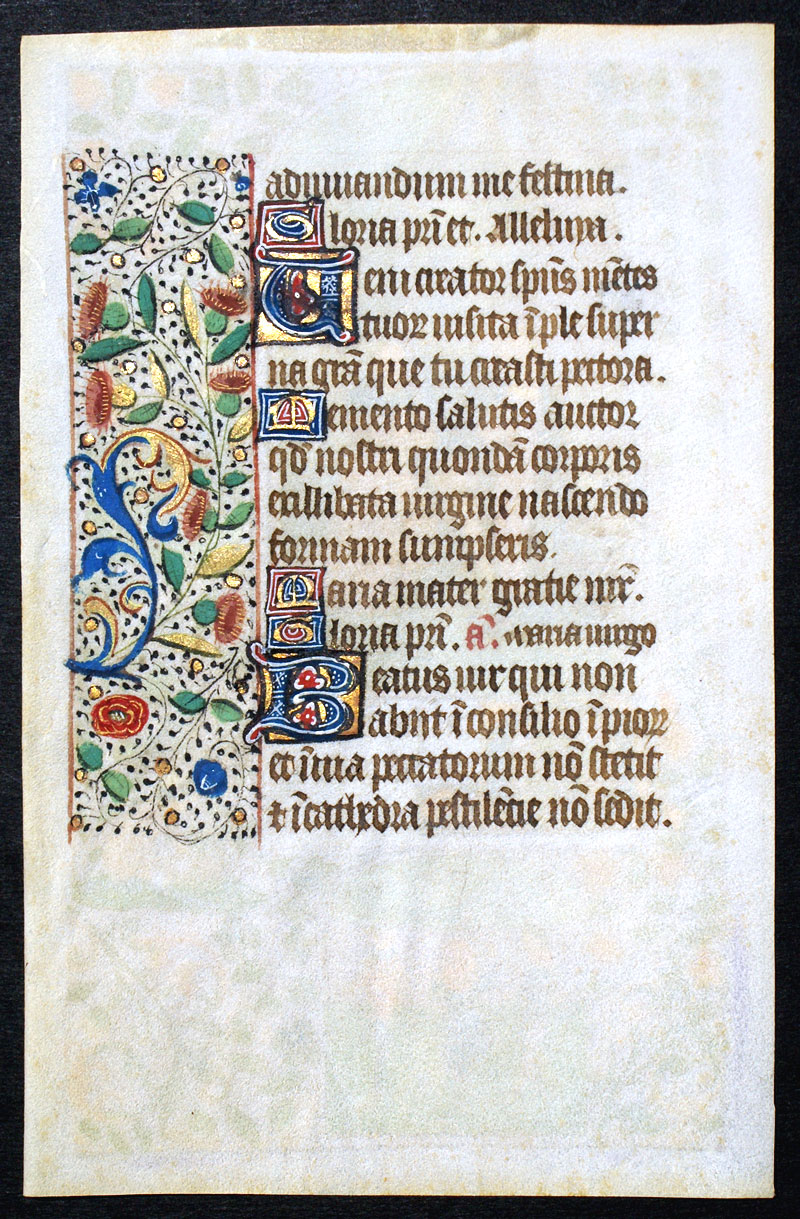 adiuuandum me festina.
Gloria pr̄i et. Alleluya.
Veni creator sp̄us mētes
tuoꝝ uisita īple super
na grā que tu creasti pectora.
Memento salutis auctor
qd̄ nostri quondā corporis
ex illibata uirgine nascendo
formam sumpseris.
Maria mater gratie mr̄.
Gloria pr̄i. a᷑. Maria uirgo
Beatus uir qui non
abiit ī consilio īpioꝝ
et ī uia peccatorum nō stetit
⁊ ī cathedra pestilētie nō sedit.